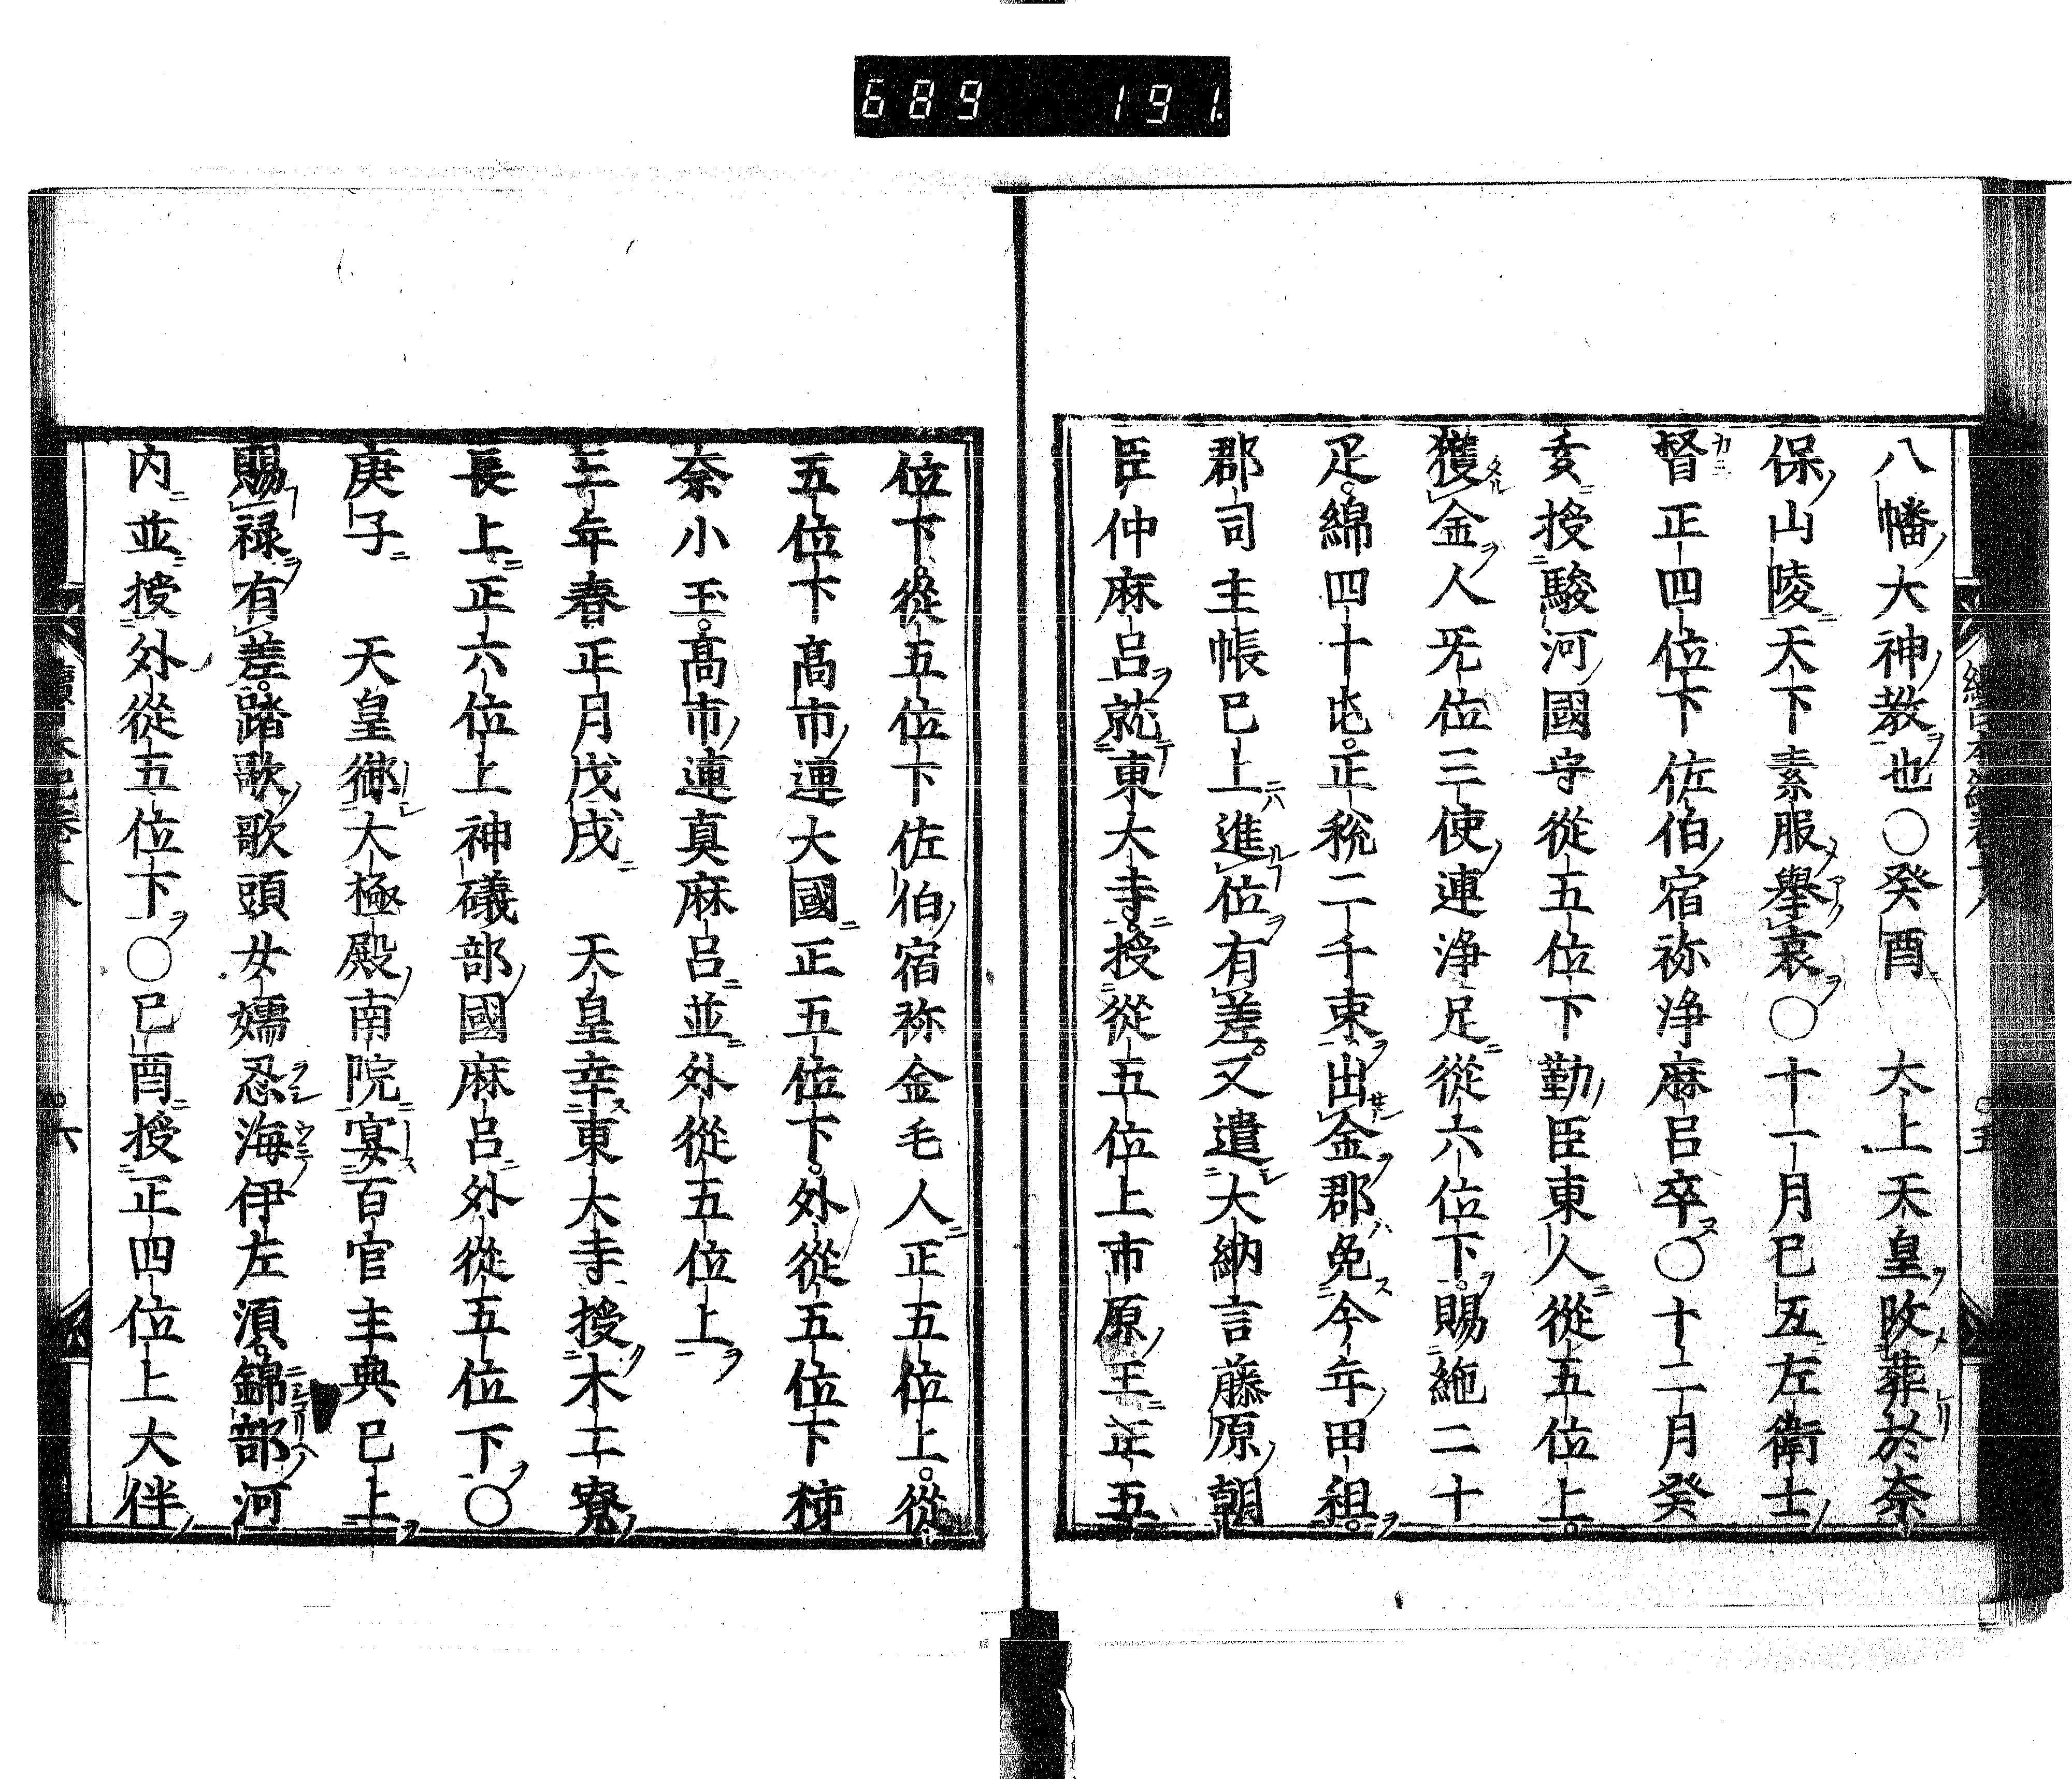 689 191.
八幡大神教也○癸酉 太上天皇改葬於奈
保山陵天下素服擧哀○十一月己丑左衛士
督正四位下佐伯宿祢浄麻呂卒○十二月癸
亥授駿河國守從五位下勤臣東人從五位上。
獲金人无位三使連浄足從六位下。賜絁二十
疋。綿四十屯。正稅二千束出金郡免今年田租。
郡司主帳已上進位有差。又遣大納言藤原朝
臣仲麻呂就東大寺。授從五位上市原王正五
位下。從五位下佐伯宿祢金毛人正五位上。從
五位下高市連大國正五位下。外從五位下柿
奈小玉。高市連真麻呂並外從五位上
三年春正月戊戌 天皇幸東大寺授木工寮
長上正六位上神礒部國麻呂外從五位下○
庚子 天皇御大極殿南院宴百官主典已上
賜禄有差。踏歌歌頭女孺忍海伊左須。錦部河
内並授外從五位下○己酉授正四位上大伴